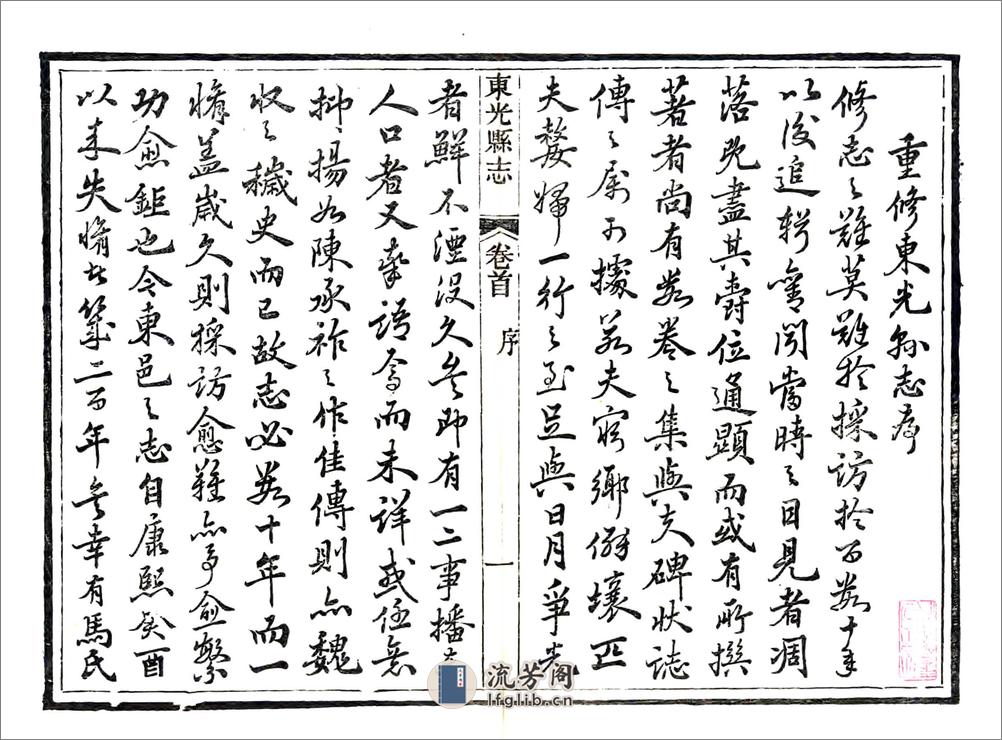 重修東光縣志序
修志之難莫難於採訪於百數十年
以後追輯舊聞當時之目見者凋
落既盡其爵位通顯而或有所撰
著者尚有數卷之集與夫碑狀誌
傳之屬可據若夫窮鄉僻壤匹
夫嫠婦一行之至足與日月爭光
東光縣志
卷首
序
一
者鮮不湮沒久矣即有一二事播在
人口者又率語焉而未詳或任意
抑揚如陳承祚之作佳傳則亦魏
收之穢史而已故志必數十年而一
脩蓋歲久則採訪愈難亦事愈繁
功愈鉅也今東邑之志自康熙癸酉
以來失脩者幾二百年矣幸有馬氏
流芳阁
lfglib.cn